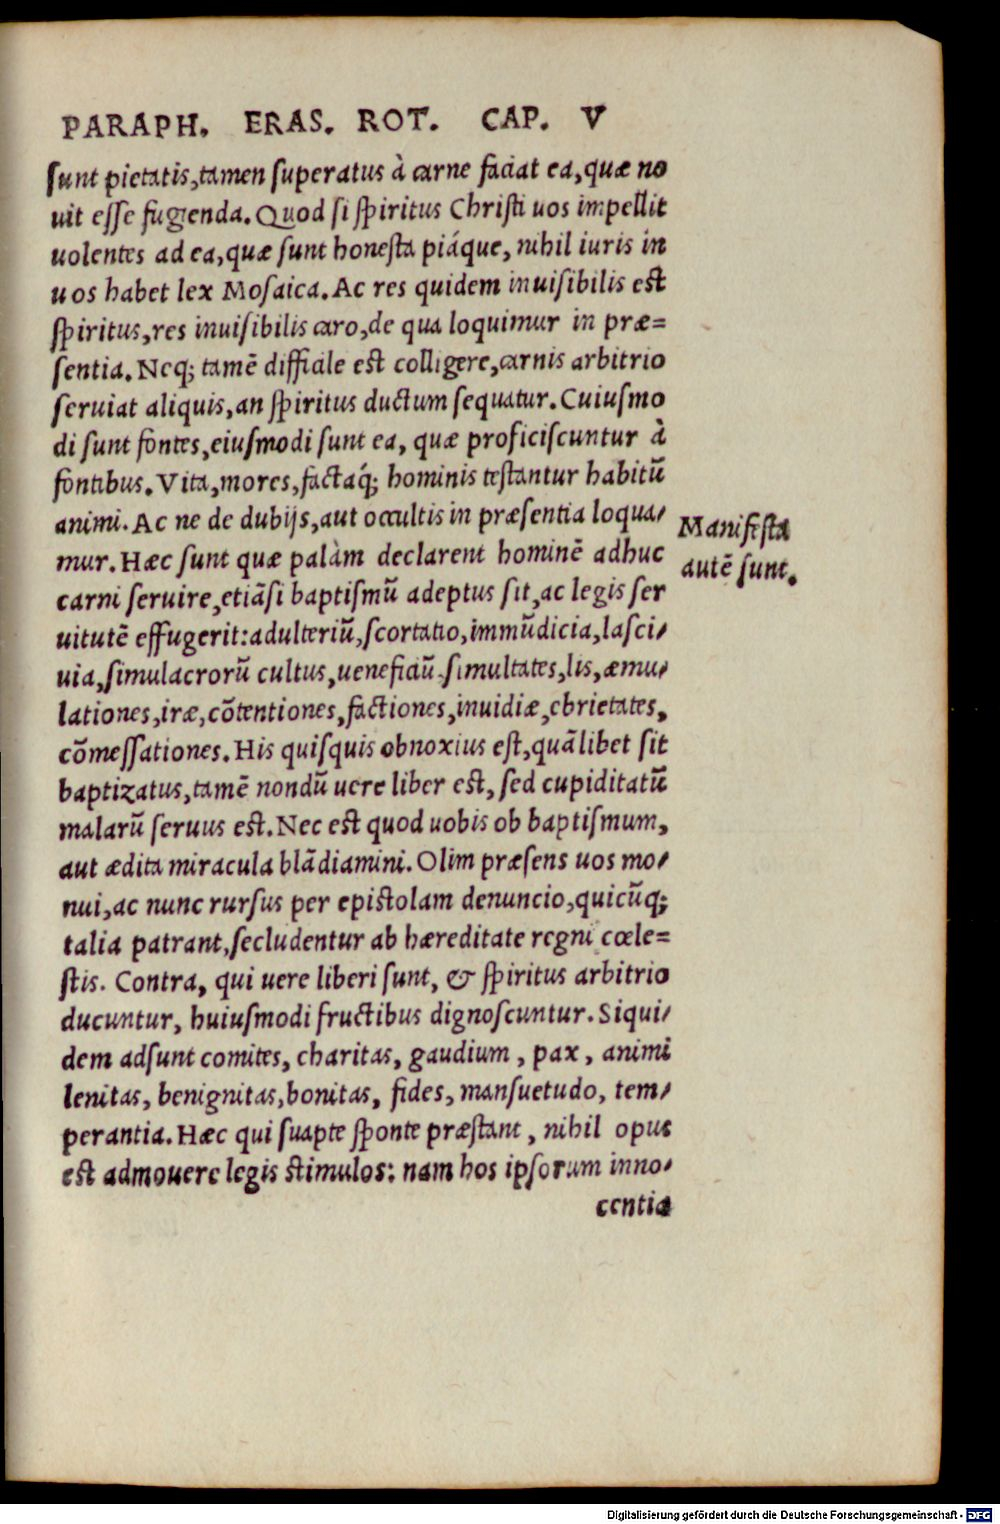 PARAPH. ERAS. ROT. CAP. V
ſunt pietatis,tamen ſuperatus à carne faciat ea,quæ no
uit eſſe fugienda. Quod ſi ſpiritus Chriſti uos impellit
uolentes ad ea,quæ ſunt honeſta piáque, nihil iuris in
uos habet lex Moſaica. Ac res quidem inuiſibilis eſt
ſpiritus,res inuiſibilis caro,de qua loquimur in præ=
ſentia. Neq; tamẽ difficile eſt colligere,carnis arbitrio
ſeruiat aliquis,an ſpiritus ductum ſequatur. Cuiuſmo
di ſunt fontes,eiuſmodi ſunt ea, quæ proficiſcuntur à
fontibus. Vita,mores,factaq́; hominis teſtantur habitũ
animi. Ac ne de dubijs,aut occultis in præſentia loqua⸗
mur. Hæc ſunt quæ palàm declarent hominẽ adhuc
carni ſeruire,etiãſi baptiſmũ adeptus ſit,ac legis ſer
uitutẽ effugerit:adulteriũ,ſcortatio,immũdicia,laſci⸗
uia,ſimulacrorũ cultus,ueneficiũ.ſimultates,lis,æmu⸗
lationes,iræ,cõtentiones,factiones,inuidiæ,ebrietates,
cõmeſſationes. His quiſquis obnoxius eſt,quãlibet ſit
baptizatus,tamẽ nondũ uere liber eſt, ſed cupiditatũ
malarũ ſeruus eſt. Nec eſt quod uobis ob baptiſmum,
aut ædita miracula blãdiamini. Olim præſens uos mo⸗
nui,ac nunc rurſus per epiſtolam denuncio,quicũq;
talia patrant,ſecludentur ab hæreditate regni cœle=
ſtis. Contra, qui uere liberi ſunt, & ſpiritus arbitrio
ducuntur, huiuſmodi fructibus dignoſcuntur. Siqui⸗
dem adſunt comites, charitas, gaudium, pax, animi
lenitas, benignitas,bonitas, fides, manſuetudo, tem⸗
perantia. Hæc qui ſuapte ſponte præſtant, nihil opus
eſt admouere legis ſtimulos: nam hos ipſorum inno⸗
centia
Manifeſta
autẽ ſunt.
Digitalisierung gefördert durch die Deutsche Forschungsgemeinschaft - DFG